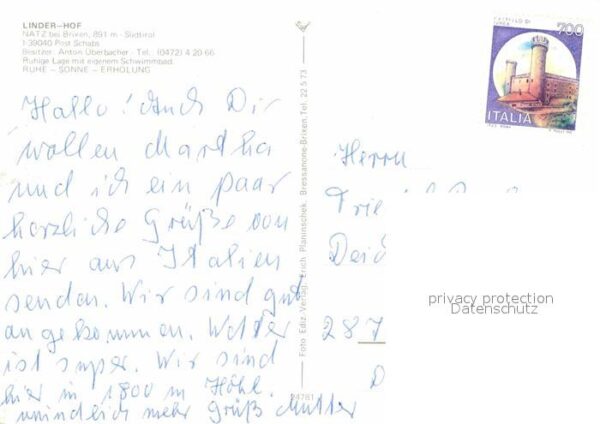 LINDER–HOF
NATZ bei Brixen, 891 m - Südtirol
I 39040 Post Schabs
Besitzer: Anton Überbacher - Tel. (0472) 4 20 66
Ruhige Lage mit eigenem Schwimmbad
RUHE – SONNE – ERHOLUNG
Hallo! Auch Dir
wollen Martha
und ich ein paar
herzliche Grüße von
hier aus Italien
senden. Wir sind gut
angekommen. Wetter
ist super. Wir sind
hier in 1800 m Höhe.
mehr Grüß Mutter
Foto Ediz. Verlag: Erich Planinschek, Bressanone-Brixen Tel. 22 5 73
24781
CASTELLO DI
700
ITALIA
Herrn
287
D
privacy protection
Datenschutz